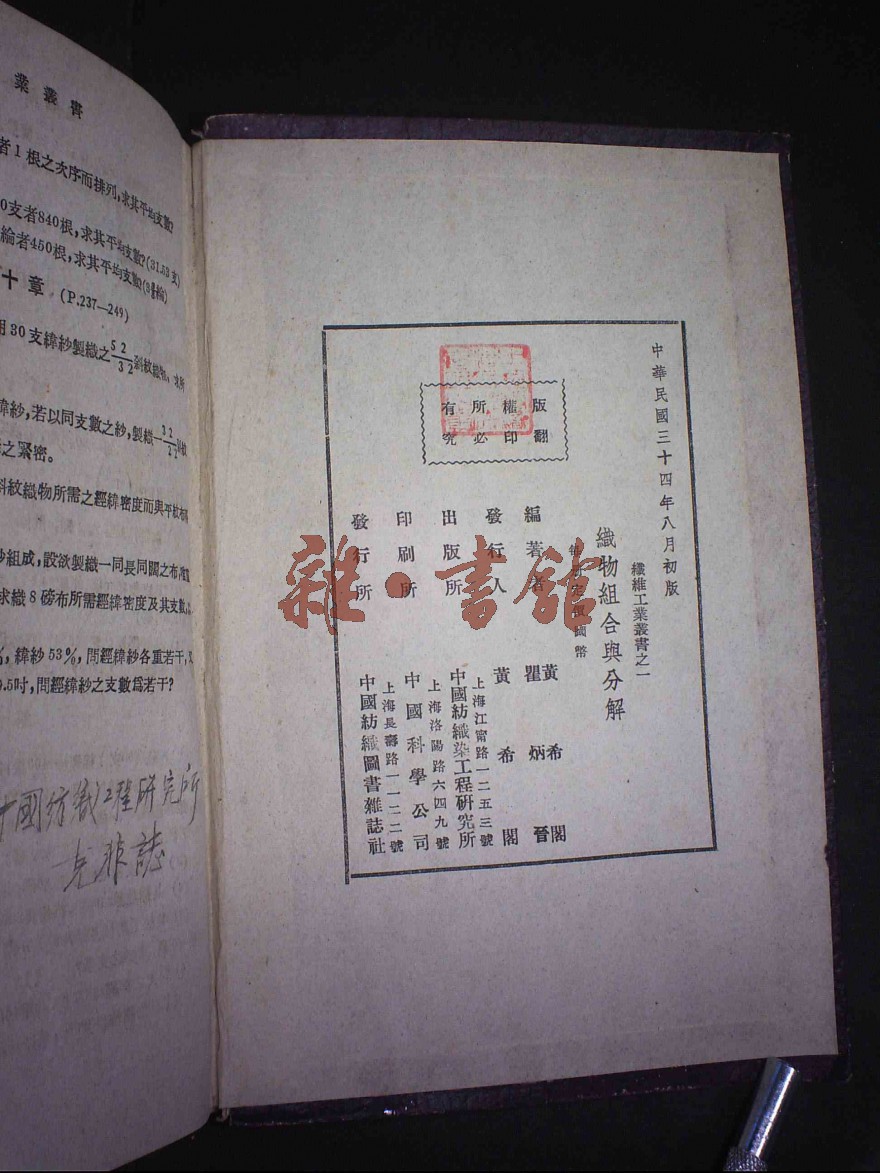 業叢書
者1根之次序而排列,求其平均支數?
0支者840根,求其平均支數?(31.53支)
綸者450根,求其平均支數?
十章 (P.237—249)
用30支緯紗製織之 5 2 / 3 2 斜紋織物,
緯紗,若以同支數之紗,製織
之緊密。
斜紋織物所需之經緯密度而與平紋
紗組成,設欲製織一同長同闊之布,
求織8磅布所需經緯密度及其支數
%,緯紗53%,問經緯紗各重若干,
9.5吋,問經緯紗之支數爲若干?
中國紡織工程研究所
誌
中華民國三十四年八月初版
纖維工業叢書之一
織物組合與分解
每 定 國幣
編著者 黃希閣
瞿炳晉
發行人 黃希閣
出版所 中國紡織染工程研究所
上海江甯路一二五三號
印刷所 中國科學公司
上海洛陽路六四九號
發行所 中國紡織圖書雜誌社
上海長壽路一一二二號
版權所有
翻印必究
雜·書館